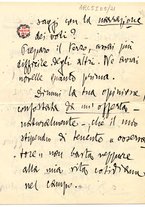 ARC5209/21
saggi con la narrazione
dei voti?
Preparo il terzo, assai più
difficile degli altri. Ne avrai
novelle quanto prima.
Dimmi la tua opinione
confortata da un'offerta
naturalmente, – che il mio
stipendio di tenente e osserva-
tore non basta neppure
alla mia vita cotidiana
nel campo.